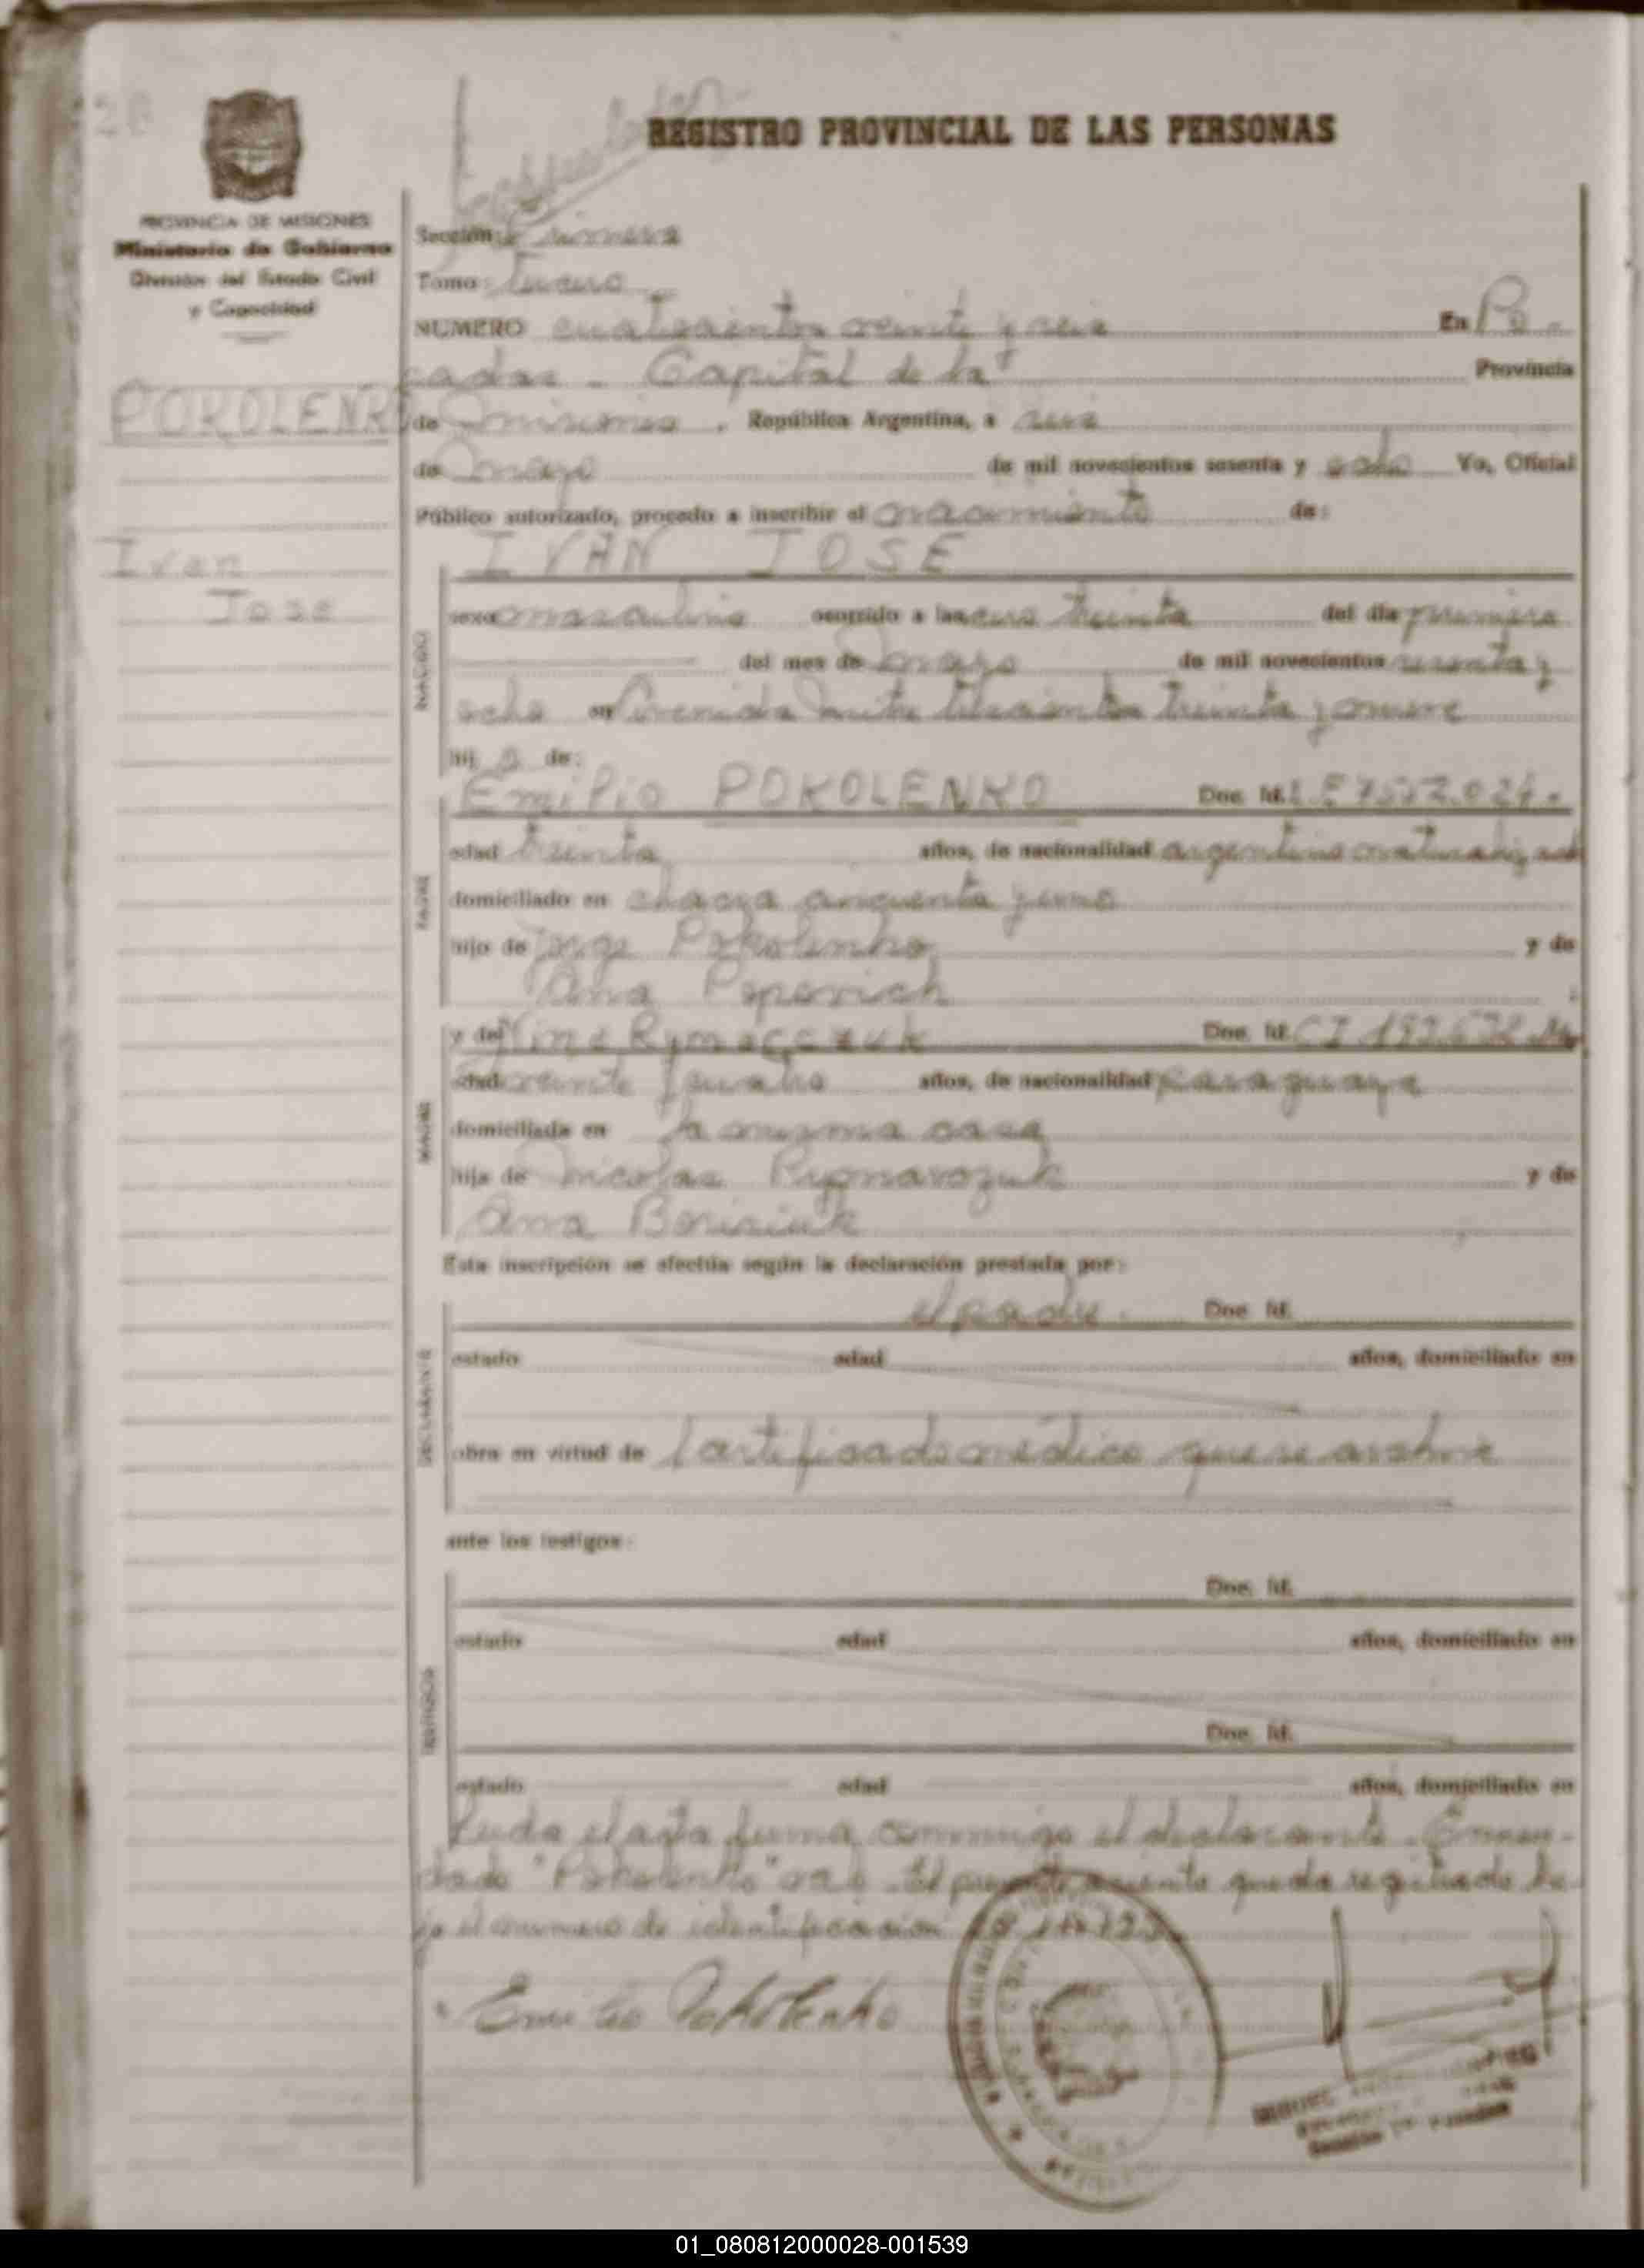 REGISTRO PROVINCIAL DE LAS PERSONAS
PROVINCIA DE MISIONES
Ministerio de Gobierno
División del Estado Civil
y Capacidad
Sección: Primera
Tomo:
NUMERO cuatrocientos veinte y seis En Po-
sadas - Capital de la Provincia
POKOLENKO
de Misiones, República Argentina, a seis
de mayo de mil novecientos sesenta y ocho Yo, Oficial
Público autorizado, procedo a inscribir el nacimiento de:
Ivan
Jose
IVAN JOSE
NACIDO
sexo masculino ocurrido a las cero treinta del día primero
del mes de mayo de mil novecientos sesenta y
ocho en Avenida Mitre trescientos treinta y nueve
hij o de:
Emilio POKOLENKO Doc. Id. L E
PADRE
edad treinta años, de nacionalidad argentino naturalizado
domiciliado en chacra cincuenta y uno
hijo de Jorge Pokolenko y de
Ana Popovich
MADRE
y de Nina Doc. Id. C I
edad veinte y cuatro años, de nacionalidad paraguaya
domiciliada en la misma casa
hija de Nicolas y de
Ana Borisiuk
Esta inscripción se efectúa según la declaración prestada por:
el padre. Doc. Id.
DECLARANTE
estado edad años, domiciliado en
obra en virtud de Certificado médico que se archive
ante los testigos:
Doc. Id.
TESTIGOS
estado edad años, domiciliado en
Doc. Id.
estado edad años, domiciliado en
Leida el acta firma conmigo el declarante. Enmen-
dado "Pokolenko" vale. El presente asiento queda registrado ba-
jo el numero de identificación
Emilio Pokolenko
MIGUEL
01_080812000028-001539